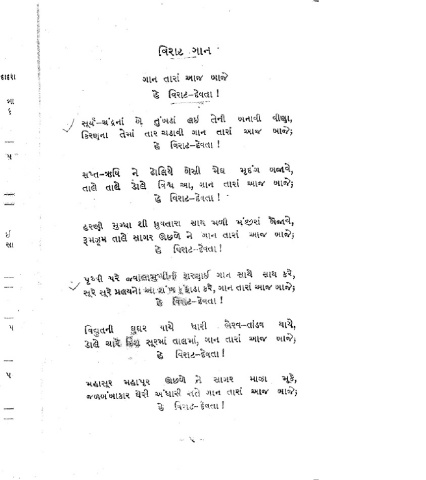 વિરાટ ગાન
ગાન તારાં આજ બાજે
હે વિરાટ-દેવતા!
સૂર્ય-ચંદ્રનાં બે તુંબડાં લઈ તેની બનાવી વીણા,
કિરણના તેમાં તાર ચઢાવી ગાન તારાં આજ બાજે;
હે વિરાટ-દેવતા!
સપ્ત-ઋષિ ને ઢોલિયે બેસી મેઘ મૃદંગ બજાવે,
તાલે તાલે ડોલે વિશ્વ આ, ગાન તારાં આજ બાજે;
હે વિરાટ-દેવતા!
હરણી શ્રી ધ્રુવતારા સાથ મળી મંજીરાં બજાવે,
રૂમઝૂમ તાલે સાગર ઊછળે ને ગાન તારાં આજ બાજે;
હે વિરાટ-દેવતા!
પૃથ્વી પરે જ્વાલામુખીની શરણાઈ ગાન સાથે સાથ કરે,
સૂરે સૂરે પ્રલયનો આ શંખ કરે, ગાન તારાં આજ બાજે;
હે વિરાટ-દેવતા!
વિદ્યુતની ઘુઘર પાયે ધારી ભૈરવ-તાંડવ થાયે,
ડોલે સૂરમાં તાલમાં, ગાન તારાં આજ બાજે;
હે વિરાટ-દેવતા!
મહાસૂર મહાપૂર ઊછળે ને સાગર માઝા મૂકે,
જળબંબાકાર ઘેરી અંધારી રાતે ગાન તારાં આજ બાજે;
હે વિરાટ-દેવતા!